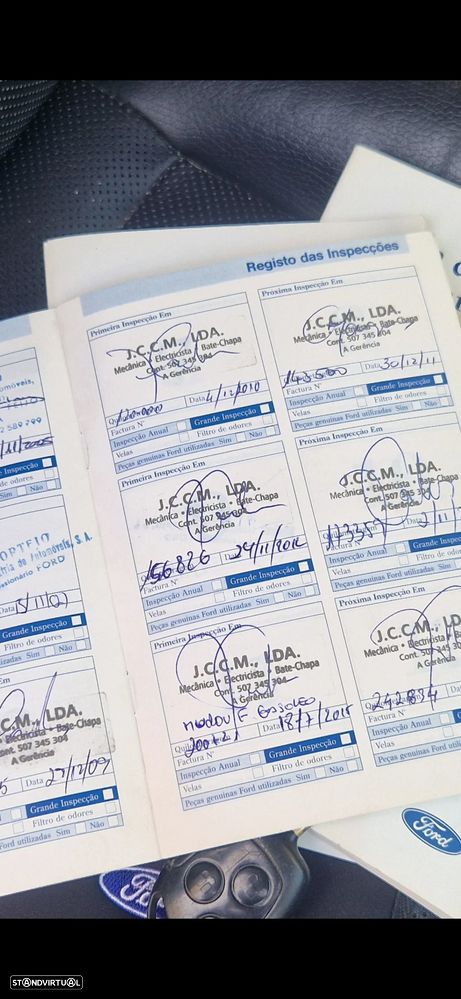 Registo das Inspecções
Primeira Inspecção Em
J.C.C.M., LDA.
Mecânica • Electricista • Bate-Chapa
Cont. 507 345 304
A Gerência
120.000
Data 4/12/2010
Factura Nº
Grande Inspecção
Inspecção Anual
Filtro de odores
Velas
Peças genuinas Ford utilizadas Sim Não
Próxima Inspecção Em
J.C.C.M., LDA.
Mecânica • Electricista • Bate-Chapa
Cont. 507 345 304
A Gerência
143.500
Data 30/12/11
Factura Nº
Grande Inspecção
Inspecção Anual
Filtro de odores
Velas
Peças genuinas Ford utilizadas Sim
Primeira Inspecção Em
J.C.C.M., LDA.
Mecânica • Electricista • Bate-Chapa
Cont. 507 345 304
A Gerência
156826
Data 24/11/2012
Factura Nº
Grande Inspecção
Inspecção Anual
Filtro de odores
Velas
Peças genuinas Ford utilizadas Sim Não
Próxima Inspecção Em
J.C.C.M., LDA.
Mecânica • Electricista • Bate-Chapa
Cont. 507 345
A Gerência
Factura Nº
Grande
Inspecção Anual
Filtro de
Velas
Peças genuinas Ford utilizadas
Primeira Inspecção Em
J.C.C.M., LDA.
Mecânica • Electricista • Bate-Chapa
Cont. 507 345 304
A Gerência
Data 18/7/2015
Factura Nº
Grande Inspecção
Inspecção Anual
Filtro de odores
Velas
Peças genuinas Ford utilizadas Sim Não
Próxima Inspecção Em
J.C.C.M.,
Mecânica • Electricista
Cont. 507
A Gerência
242834
Factura Nº
Inspecção Anual
Velas
Peças genuinas Ford
2 589 799
Inspecção
de odores
Sim Não
FORD
Data 5/11/07
Grande Inspecção
Filtro de odores
Sim Não
C.M., LDA.
Bate-Chapa
Cont. 507 345 304
A Gerência
Data 22/12/09
Grande Inspecção
Filtro de odores
Ford utilizadas Sim Não
Ford
Ford
STANDVIRTUAL